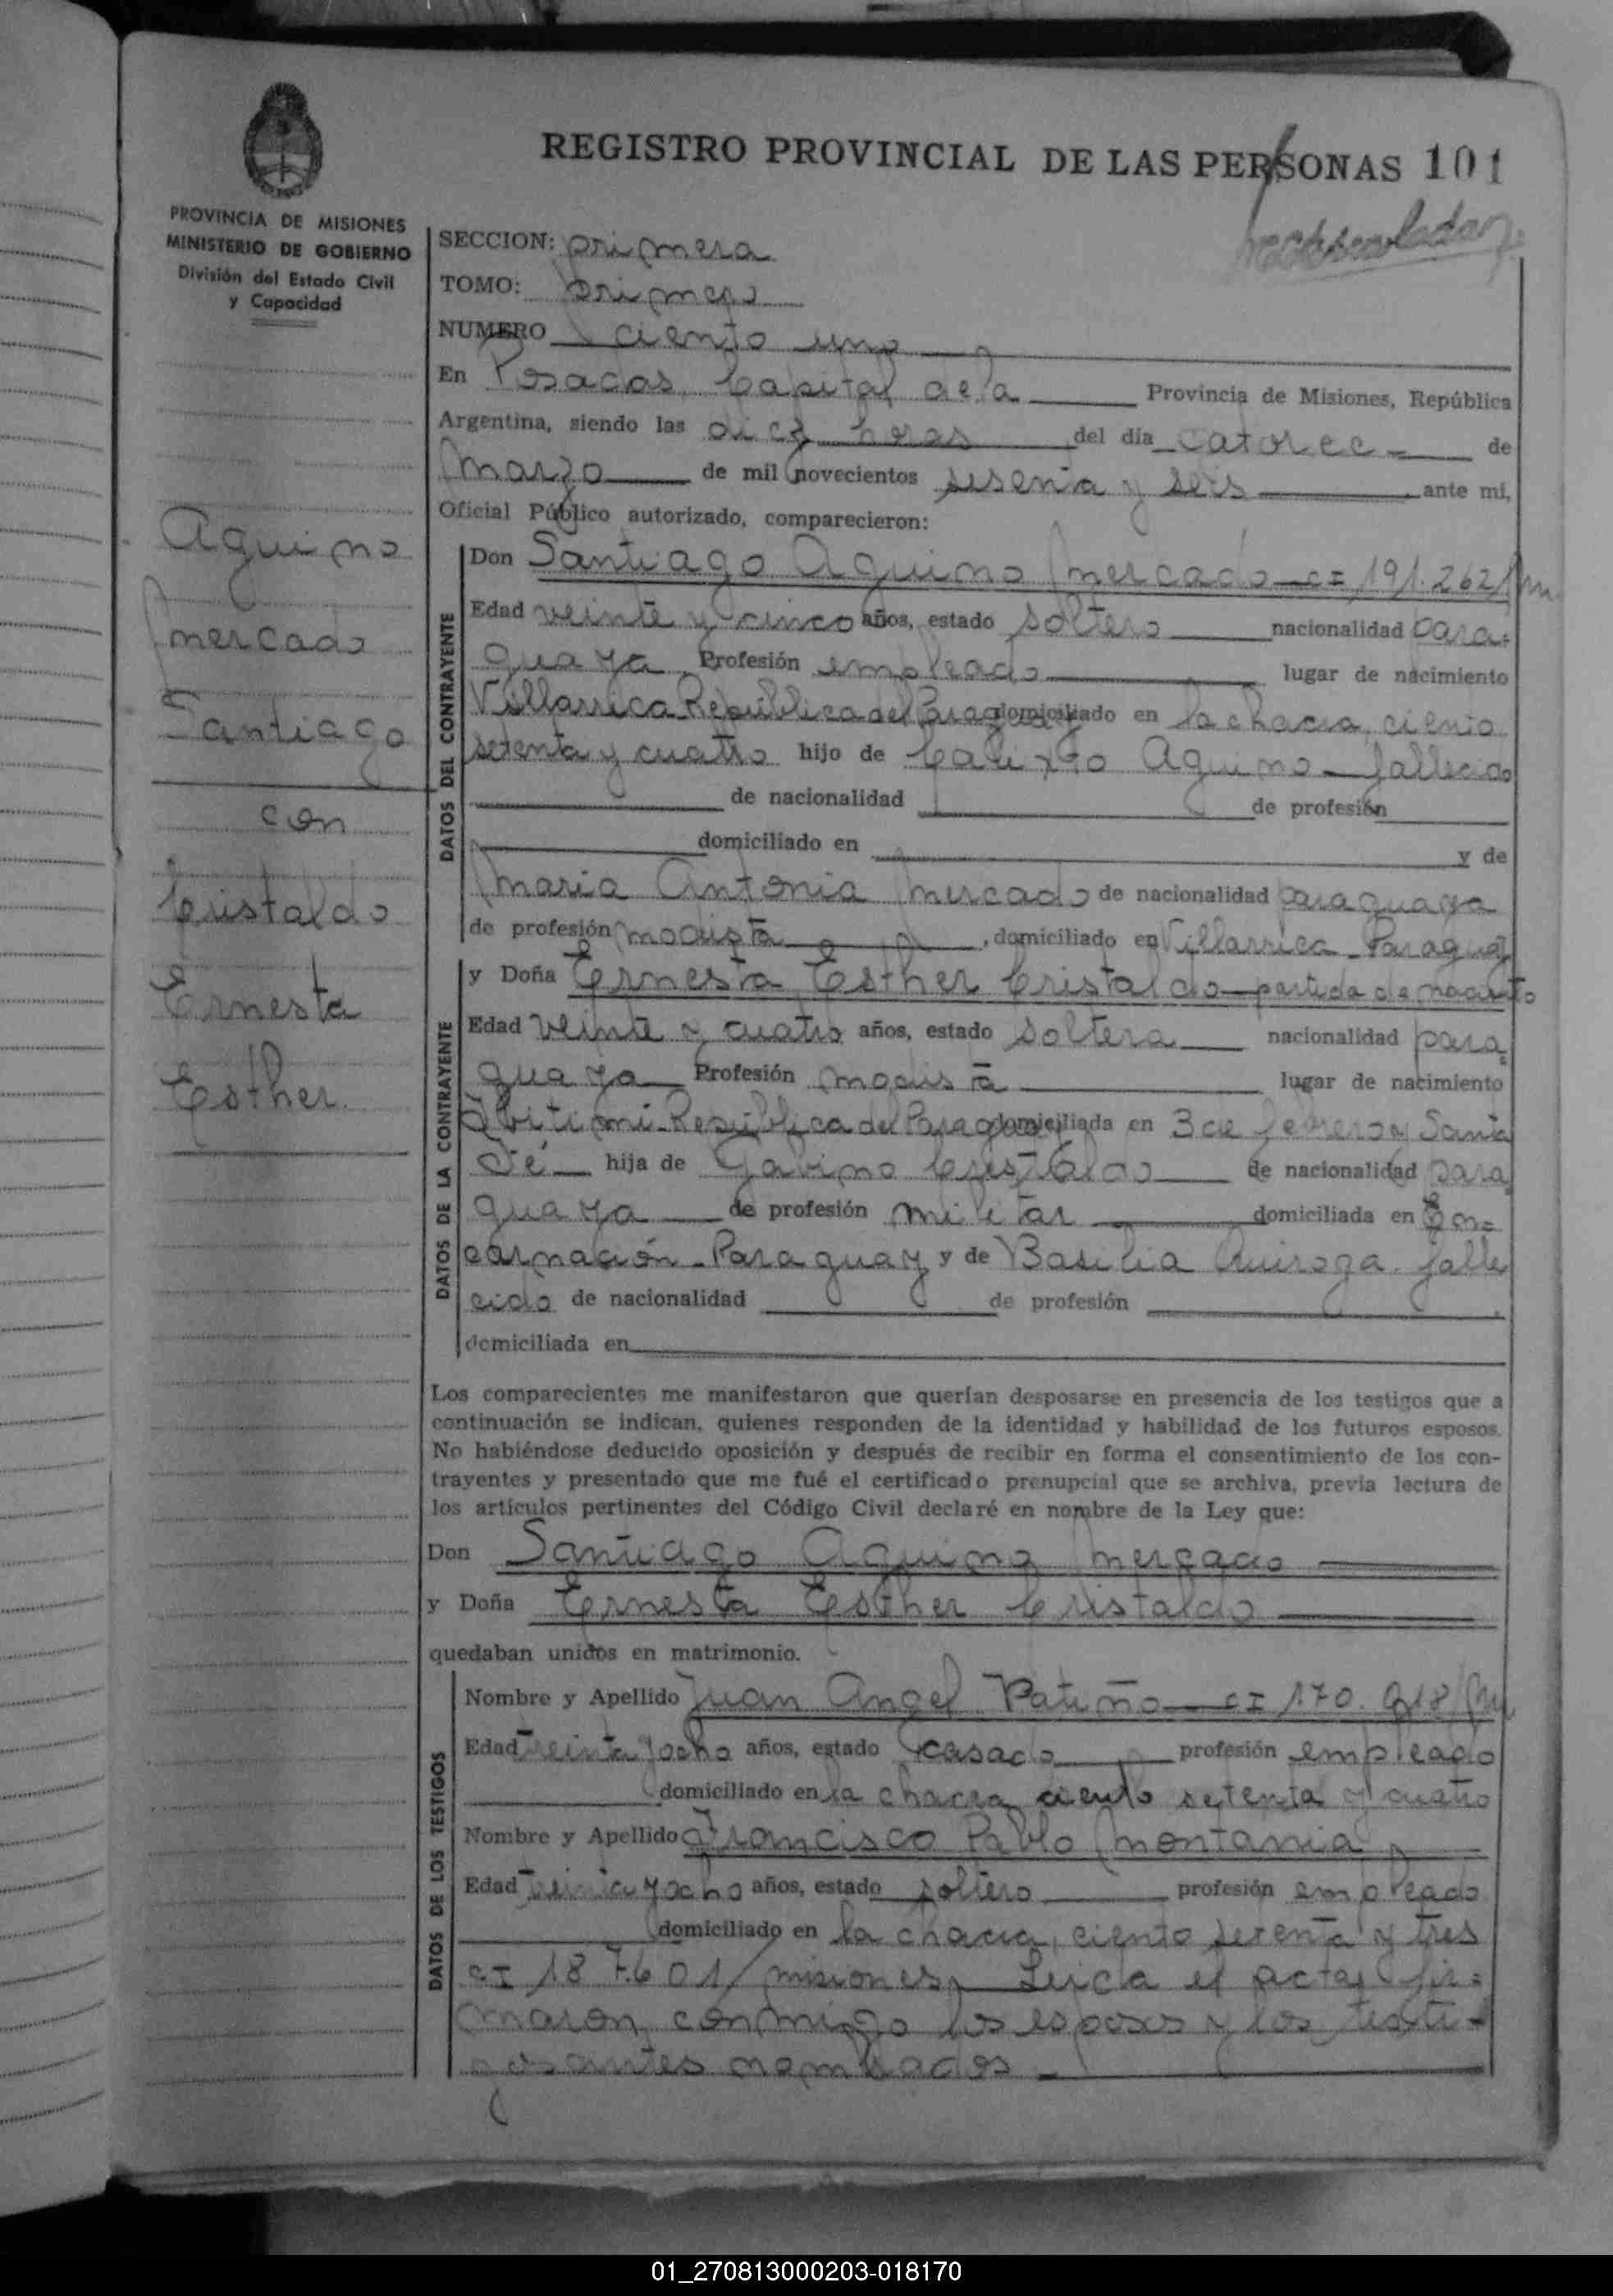 REGISTRO PROVINCIAL DE LAS PERSONAS 101
PROVINCIA DE MISIONES
MINISTERIO DE GOBIERNO
División del Estado Civil
y Capacidad
Aquino
Mercado
Santiago
con
Cristaldo
Ernesta
Esther.
SECCION: primera
TOMO: primero
NUMERO ciento uno
En Posadas, Capital de la Provincia de Misiones, República
Argentina, siendo las diez horas del día catorce de
Marzo de mil novecientos sesenta y seis ante mí,
Oficial Público autorizado, comparecieron:
DATOS DEL CONTRAYENTE
Don Santiago Aquino Mercado - CI 191.262/m.
Edad veinte y cinco años, estado soltero nacionalidad para-
guaya Profesión empleado lugar de nacimiento
Villarrica-República del Paraguay domiciliado en la chacra ciento
setenta y cuatro hijo de Calixto Aquino - fallecido
de nacionalidad de profesión
domiciliado en y de
Maria Antonia Mercado de nacionalidad paraguaya
de profesión modista, domiciliado en Villarrica - Paraguay
DATOS DE LA CONTRAYENTE
y Doña Ernesta Esther Cristaldo - partida de
Edad veinte y cuatro años, estado soltera nacionalidad para
guaya Profesión modista lugar de nacimiento
República del Paraguay domiciliada en 3 de febrero y Santa
Fé hija de Gabino Cristaldo de nacionalidad para
guaya de profesión militar domiciliada en En-
carnación - Paraguay y de Basilia Quiroga. falle
cida de nacionalidad de profesión
domiciliada en
Los comparecientes me manifestaron que querían desposarse en presencia de los testigos que a
continuación se indican, quienes responden de la identidad y habilidad de los futuros esposos.
No habiéndose deducido oposición y después de recibir en forma el consentimiento de los con-
trayentes y presentado que me fué el certificado prenupcial que se archiva, previa lectura de
los artículos pertinentes del Código Civil declaré en nombre de la Ley que:
Don Santiago Aquino Mercado
y Doña Ernesta Esther Cristaldo
quedaban unidos en matrimonio.
DATOS DE LOS TESTIGOS
Nombre y Apellido Juan Angel Patiño - CI 170.
Edad treinta y ocho años, estado casado profesión empleado
domiciliado en la chacra ciento setenta y cuatro
Nombre y Apellido Francisco Pablo Montania
Edad treinta y ocho años, estado soltero profesión empleado
domiciliado en la chacra, ciento setenta y tres
CI 187.601/misiones, Leída el acta, fir-
maron conmigo los esposos y los testi-
gos antes nombrados
01_270813000203-018170